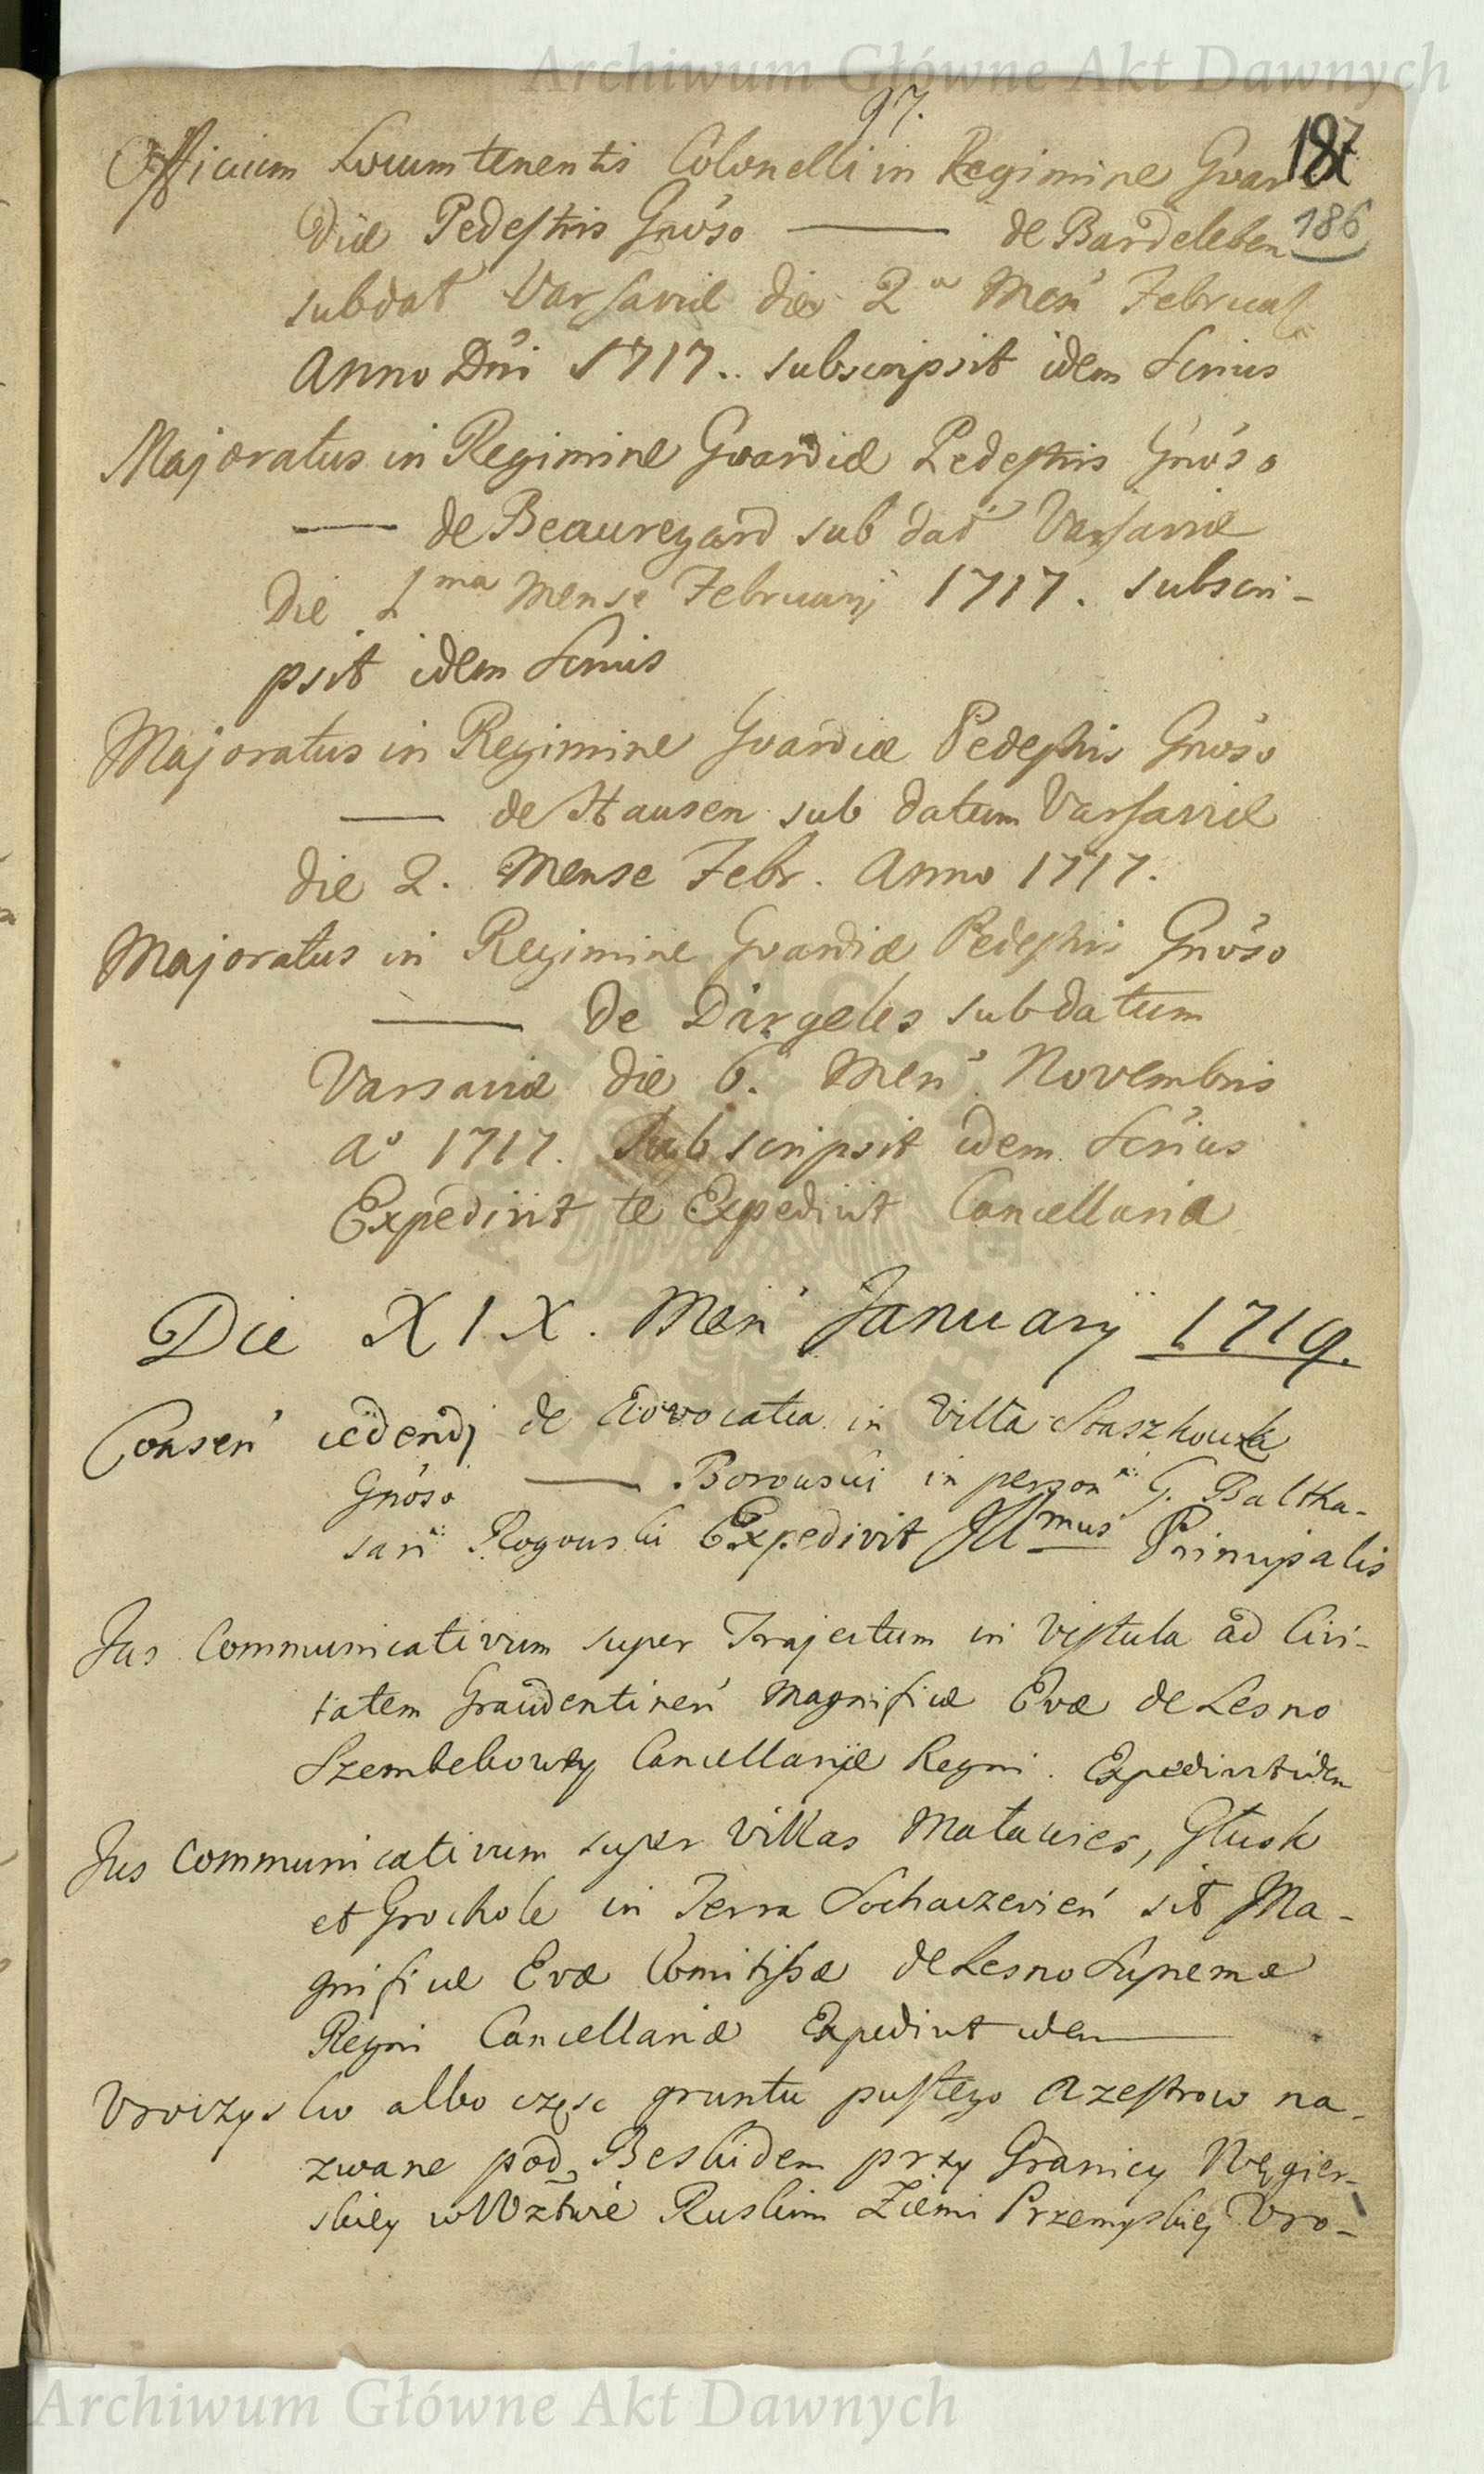 Archiwum Główne Akt Dawnych
97.
187
186
Officium Locumtenentis Colonelli in Regimine Gvar
diæ Pedestris Gnoso —— de Bardeleben
subdat Varsaviæ die 2a Men Februar
Anno Dni 1717. subscripsit idem Srius
Majoratus in Regimine Gvardiæ Pedestris Gnoso
—— de Beauregard sub dat Varsaviæ
Die 1ma Mense Februarij 1717. subscri-
psit idem Srius
Majoratus in Regimine Gvardiæ Pedestris Gnoso
—— de Hausen sub datum Varsaviæ
die 2. Mense Febr. Anno 1717.
Majoratus in Regimine Gvardiæ Pedestris Gnoso
—— De Dirgeles subdatum
Varsaviæ die 6. Men Novembris
Ao 1717. Subscripsit idem Srius
Expedivit te Expedivit Cancellaria
Die XIX. Men January 1719.
Consen cedendj de Advocatia in Villa Staszkowka
Gnoso —— Borowski in person G. Baltha-
sari Rogowski Expedivit Illmus Principalis
Jus Communicativum super Trajectum in Vistula ad Civi-
tatem Graudentinen Magnificæ Evæ de Lesno
Szembekowey Cancellariæ Regni. Expedivit idem
Jus Communicativum super Villas Matawies, Głusk
et Grochole in Terra Sochaczevien sit Ma-
gnificæ Evæ Comitissæ de Lesno Supremæ
Regni Cancellariæ Expedivit idem
Vroczysko albo częsc gruntu pustego Rzestrow na-
zwane pod Beskidem przy Granicy Węgier-
skiey w Wztwie Ruskim Ziemi Przemyskiej Vro-
Archiwum Główne Akt Dawnych